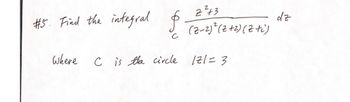 #5. Find the integral ∮_C (z²+3)/((z-2)²(z+2)(z+i)) dz
where C is the circle |z| = 3